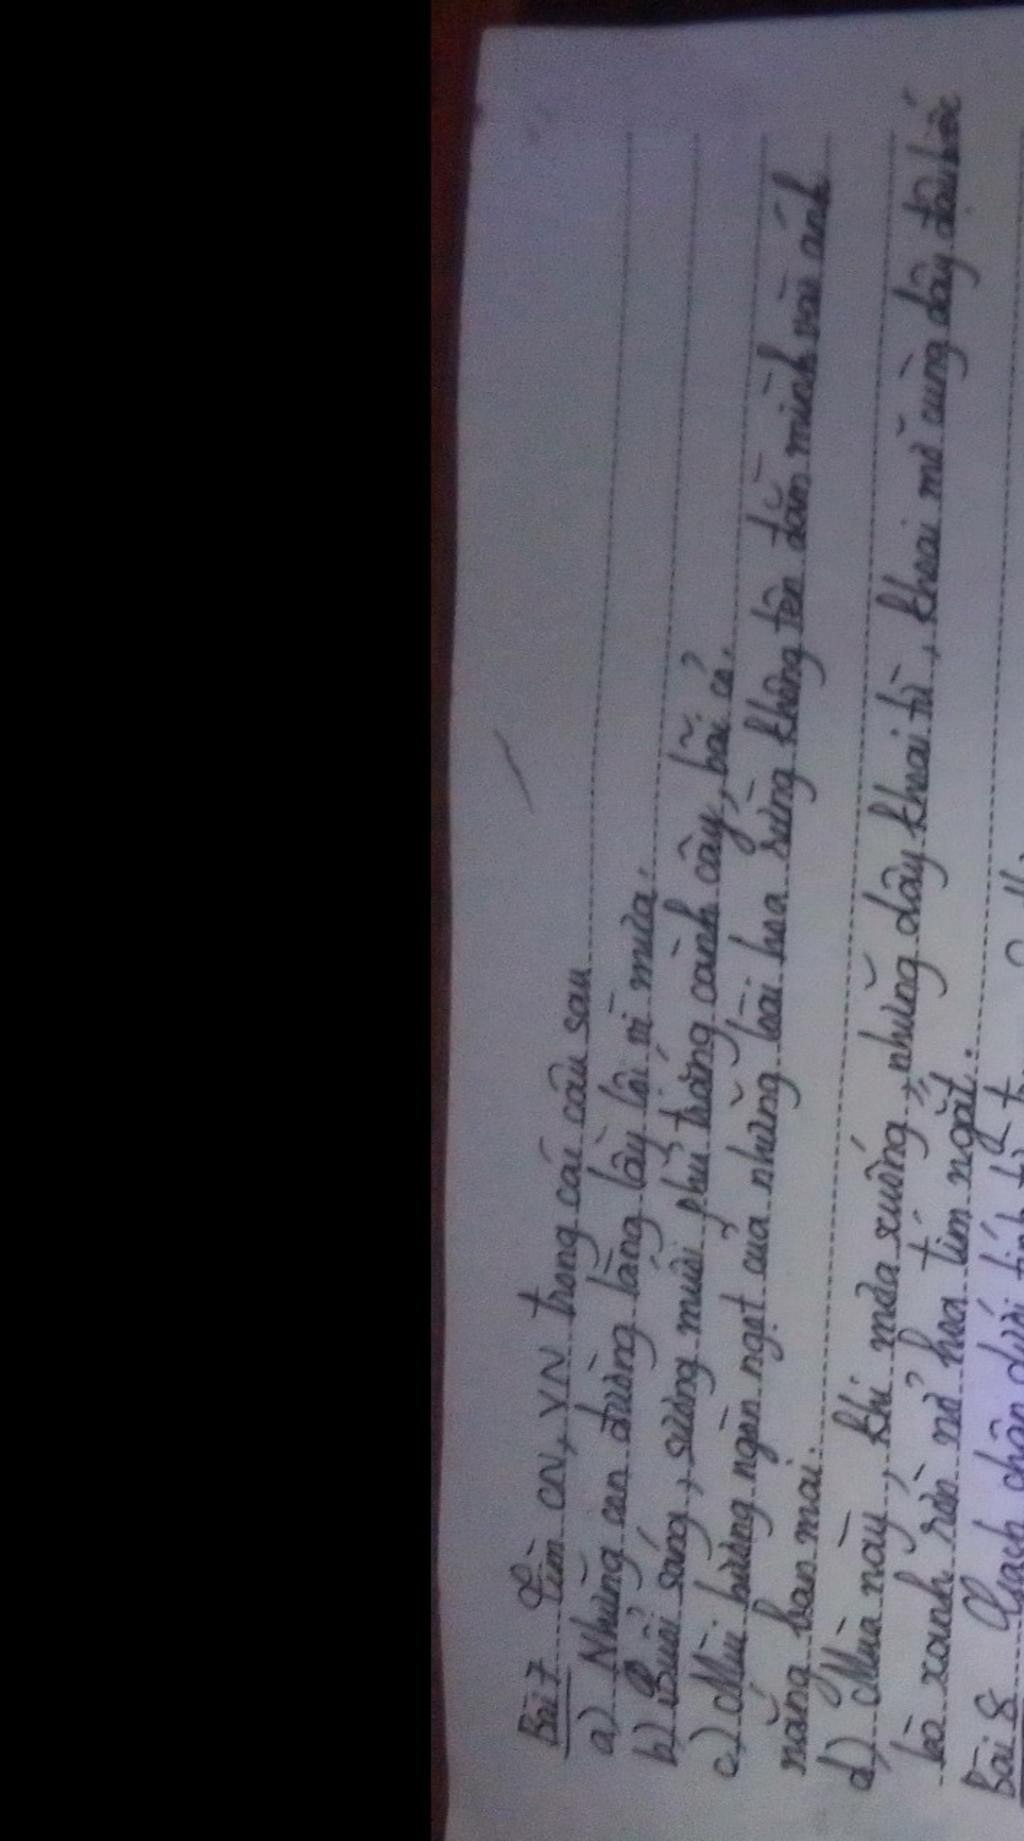 Bài 7 Tìm CN, VN trong các câu sau
a) Những con đường làng lầy lội vì mưa.
b) Buổi sáng, sương muối phủ trắng cành cây, bãi cỏ.
c) Mùi hương ngòn ngọt của những loài hoa rừng không tên đằm mình vào ánh
nắng ban mai.
d) Mùa này, khi mưa xuống, những dây khoai từ, khoai mỡ cùng dây đậu biếc
bò xanh rờn nở hoa tím ngắt.
Bài 8 Gạch chân dưới tính